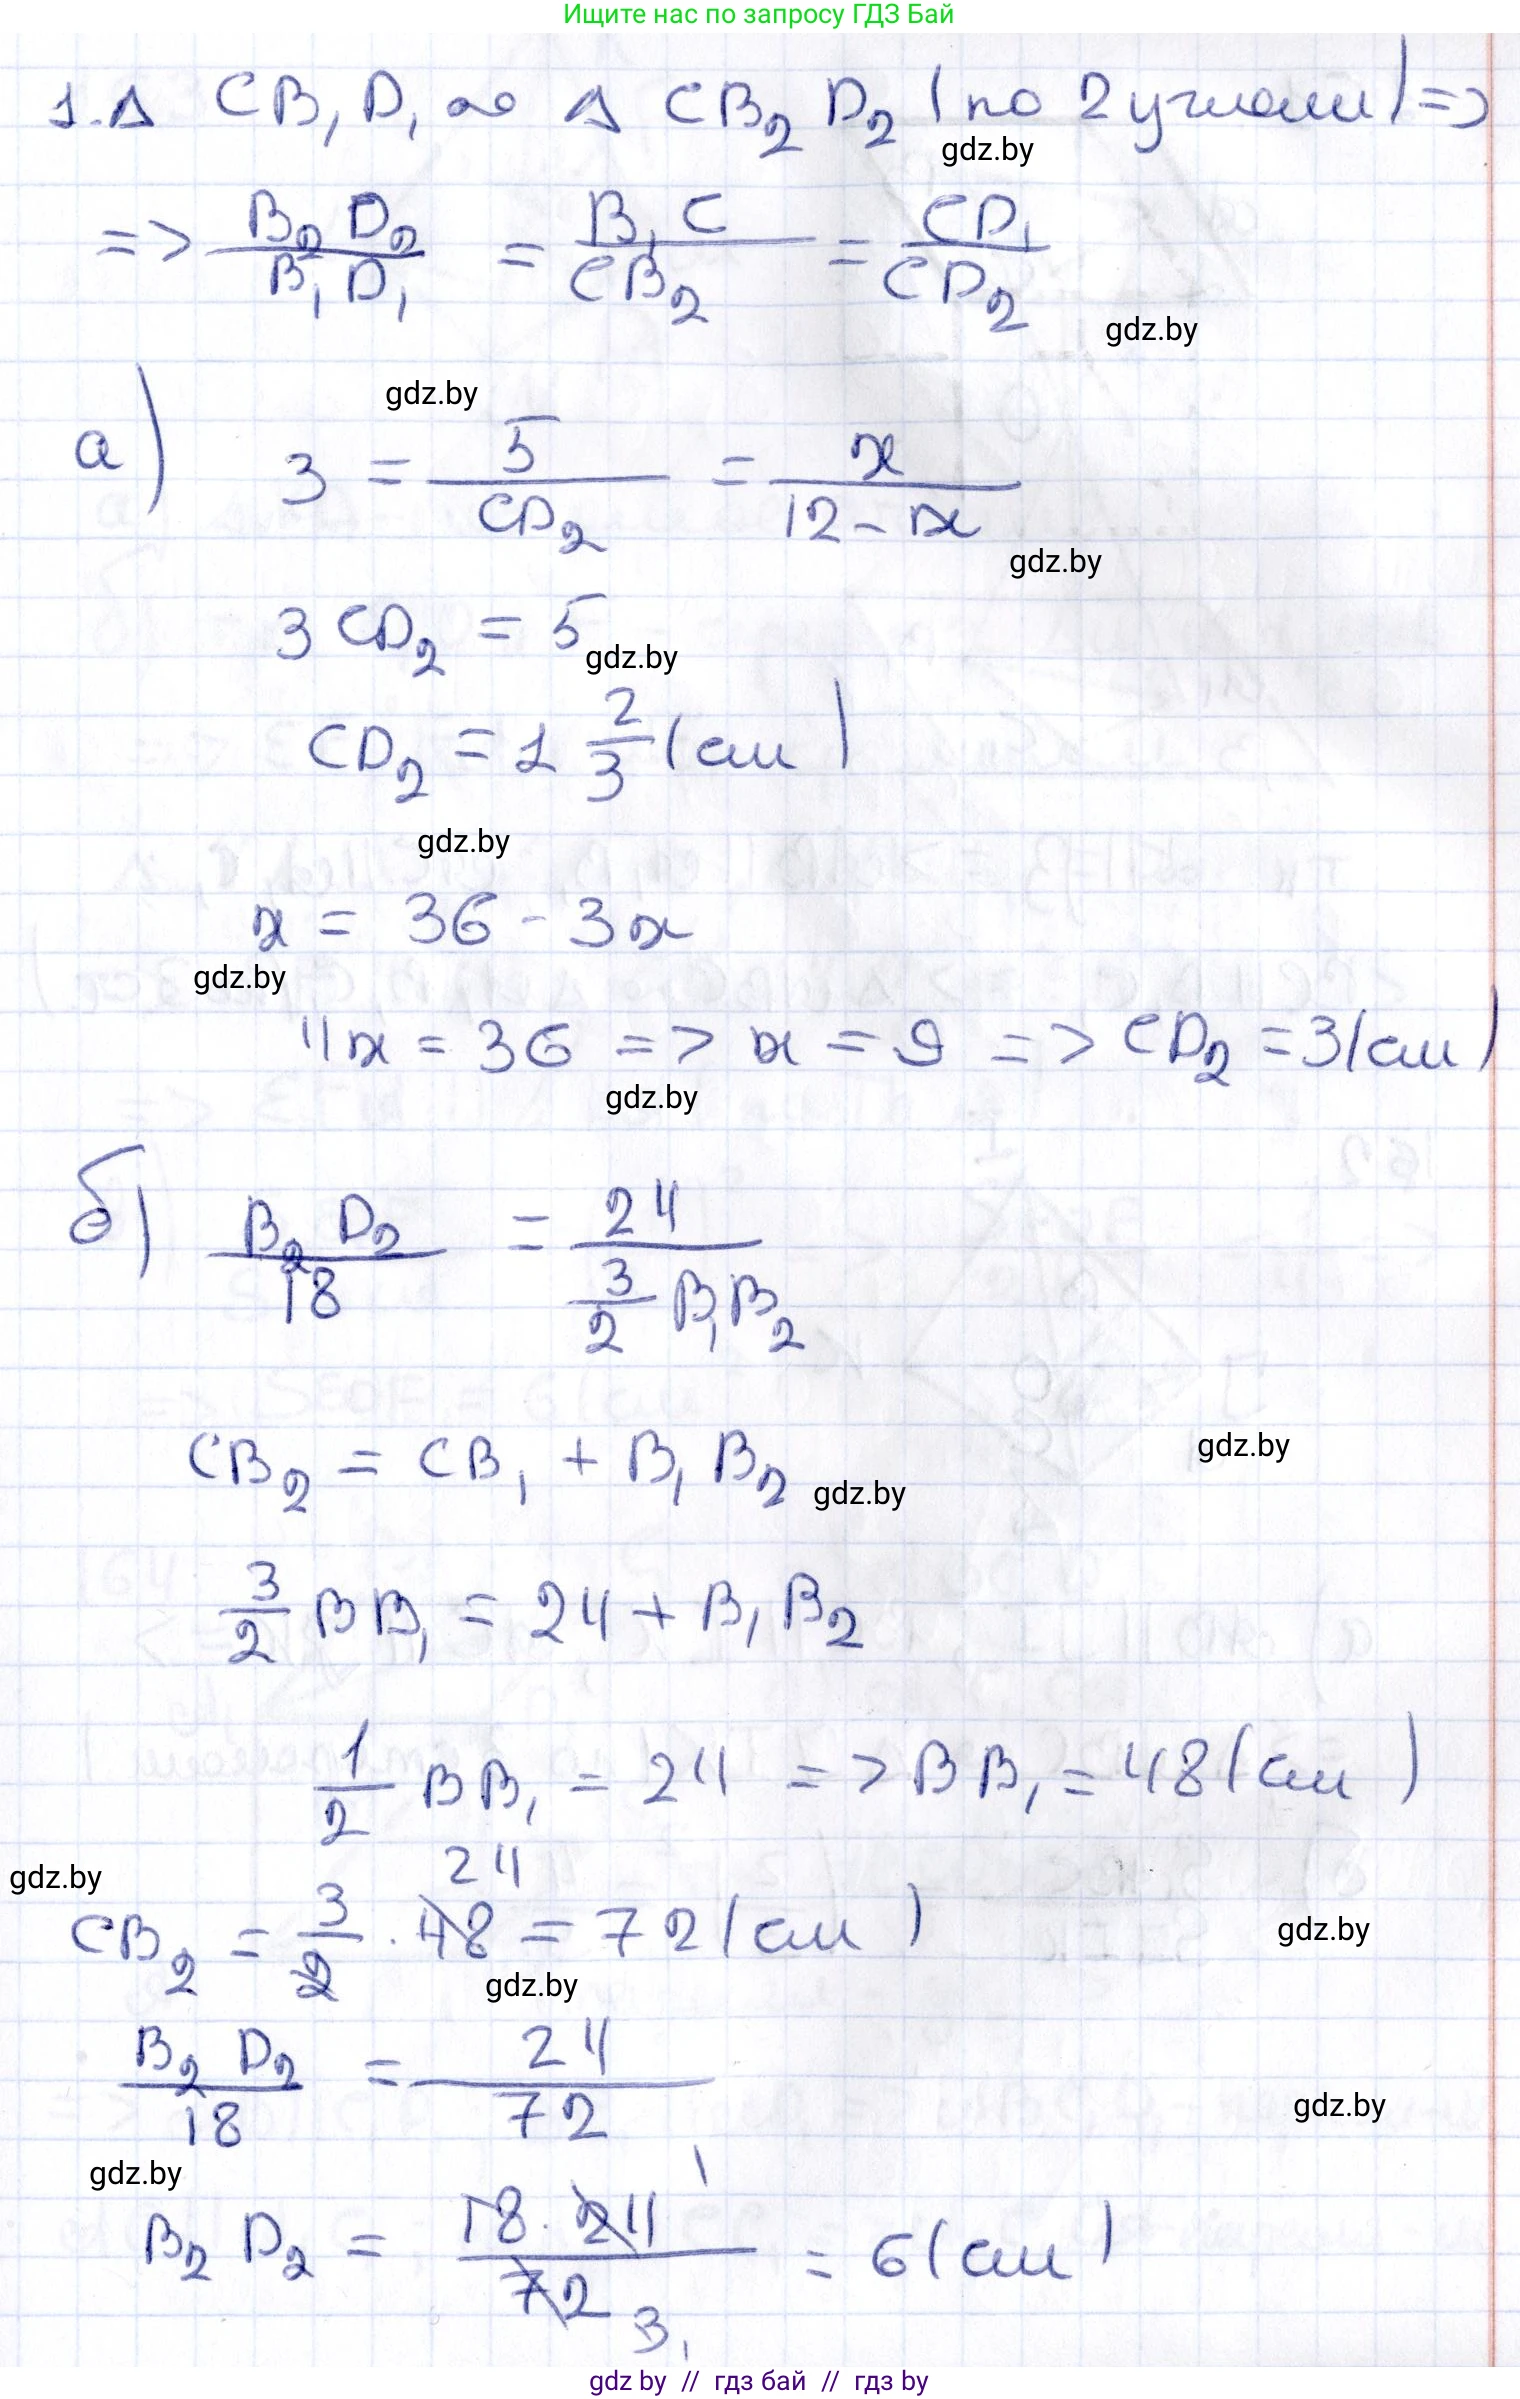 Ищите нас по запросу ГДЗ Бай
1. Δ CB₁D₁ ∾ Δ CB₂D₂ (по 2 углам) =>
gdz.by
=> B₂D₂/B₁D₁ = B₁C/CB₂ = CD₁/CD₂
gdz.by
gdz.by
а) 3 = 5/CD₂ = x/(12-x)
gdz.by
3 CD₂ = 5
gdz.by
CD₂ = 1 2/3 (см)
gdz.by
x = 36 - 3x
gdz.by
4x = 36 => x = 9 => CD₂ = 3 (см)
gdz.by
б) B₂D₂/18 = 24/(3/2 B₁B₂)
gdz.by
CB₂ = CB₁ + B₁B₂
gdz.by
3/2 BB₁ = 24 + B₁B₂
1/2 BB₁ = 24 => BB₁ = 48 (см)
24
gdz.by
CB₂ = 3/2 · 48 = 72 (см)
gdz.by
gdz.by
B₂D₂/18 = 24/72
gdz.by
gdz.by
1
B₂D₂ = 18·24/72 = 6 (см)
3
gdz by // гдз бай // гдз by